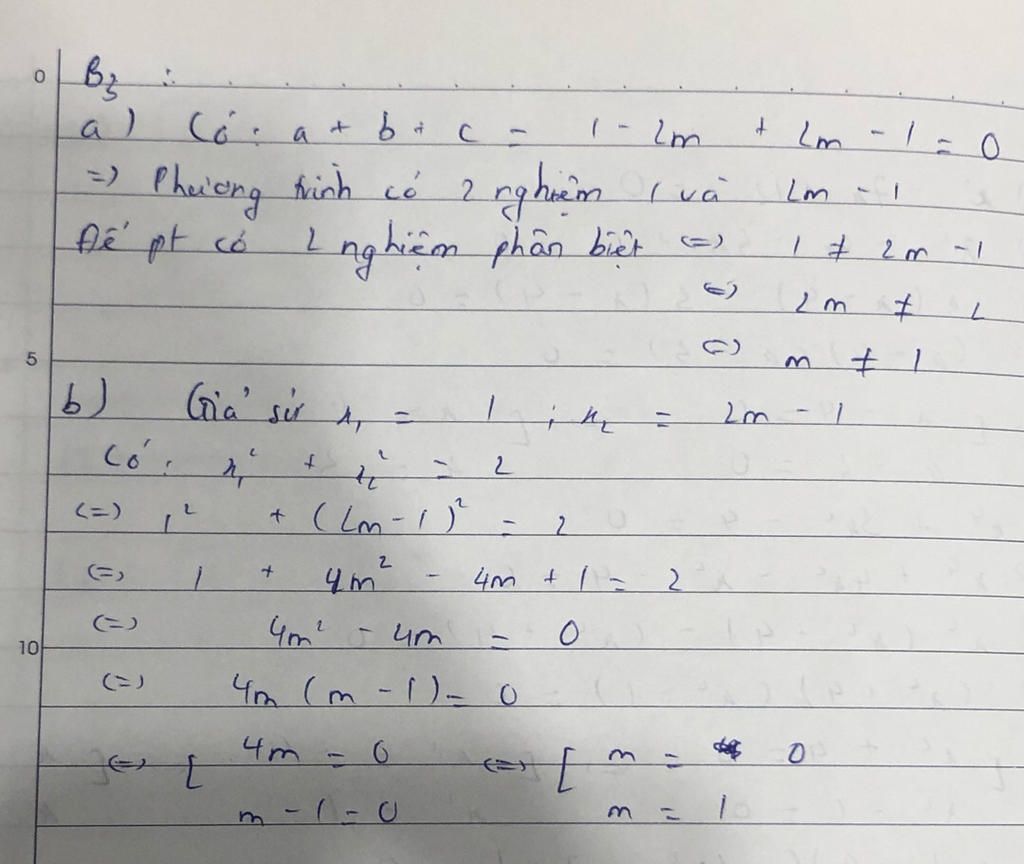 0 B3 :
a) Có : a + b + c = 1 - 2m + 2m - 1 = 0
=> Phương trình có 2 nghiệm 1 và 2m - 1
Để pt có 2 nghiệm phân biệt <=> 1 ≠ 2m - 1
<=> 2m ≠ 2
5 <=> m ≠ 1
b) Giả sử x₁ = 1 ; x₂ = 2m - 1
Có : x₁² + x₂² = 2
<=> 1² + (2m - 1)² = 2
<=> 1 + 4m² - 4m + 1 = 2
<=> 4m² - 4m = 0
10
<=> 4m (m - 1) = 0
<=> [ 4m = 0 <=> [ m = 0
m - 1 = 0 m = 1